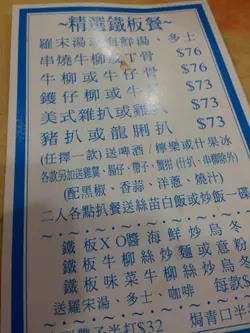 ~精選鐵板餐~
羅宋湯 海鮮湯、多士
串燒牛柳或丁骨 $76
牛柳或牛仔骨 $76
鑊仔柳或牛 $73
美式雜扒或雞扒 $73
豬扒或龍脷扒 $73
(任擇一款)送啤酒/檸樂或什果冰
各款另加送雞翼、腸仔、帶子、蟹柑(什扒、串燒除外)
(配黑椒、香蒜、洋蔥、燒汁)
二人各點扒餐送絲苗白飯或炒飯一碟
鐵板XO醬海鮮炒烏冬
鐵板牛柳絲炒麵或意粉
鐵板味菜牛柳絲炒烏冬
送羅宋湯、多士、咖啡 每款$
帶子半打$32 焗青口半